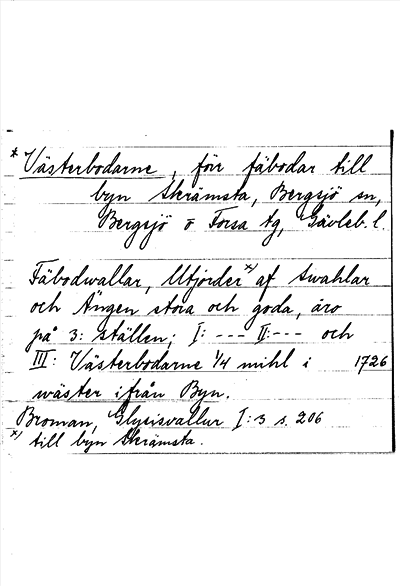 * Västerbodarne, förr fäbodar till
byn Skrämsta, Bergsjö sn,
Bergsjö o Forsa tg, Gävleb. l.
Fäbodwallar, Utjorder x) af swahlar
och Ängen stora och goda, äro
på 3: ställen; I: --- II: --- och
III: Västerbodarne 1/4 mihl i 1726
wäster ifrån Byn.
Broman, Glysisvallur I: 3 s. 206
x) till byn Skrämsta.